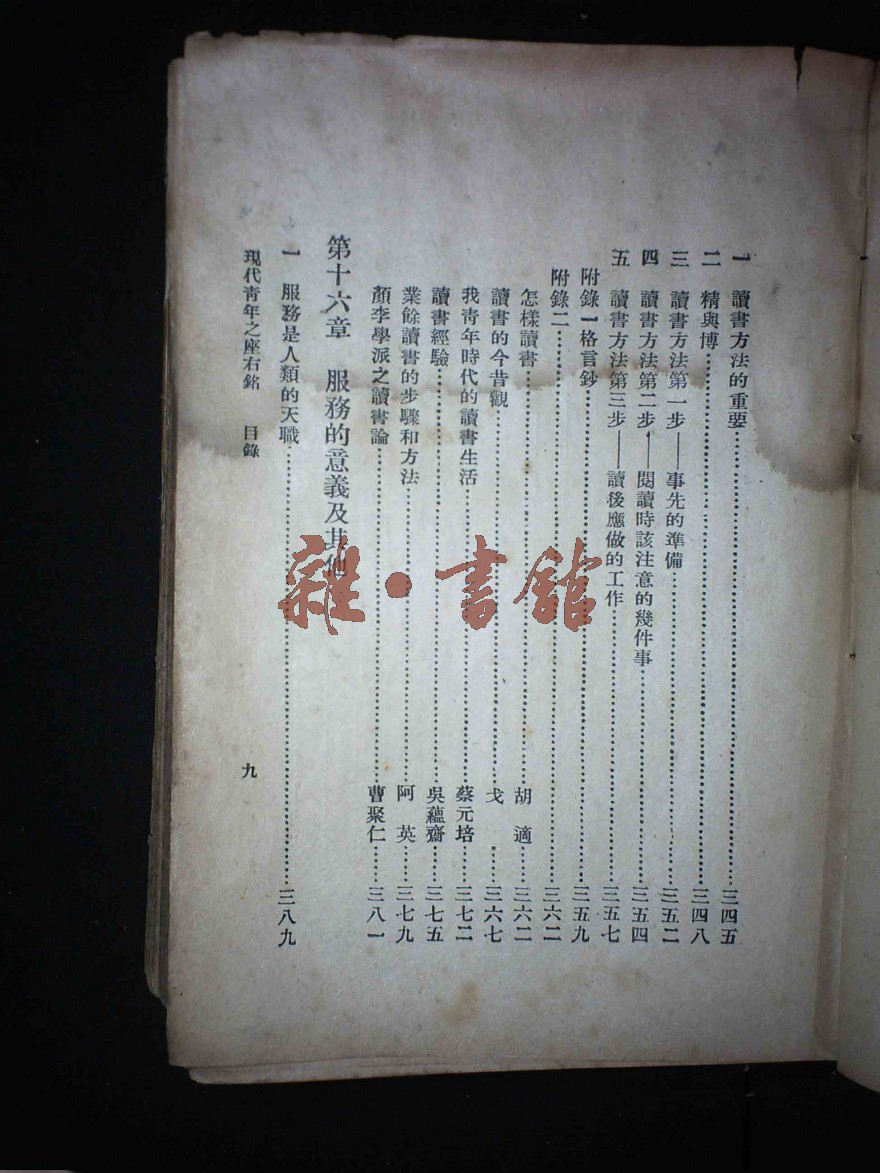 一　讀書方法的重要……三四五
二　精與博……三四八
三　讀書方法第一步——事先的準備……三五二
四　讀書方法第二步——閱讀時該注意的幾件事……三五四
五　讀書方法第三步——讀後應做的工作……三五七
附錄一格言鈔……三五九
附錄二……三六二
怎樣讀書……胡　適……三六二
讀書的今昔觀……戈……三六七
我青年時代的讀書生活……蔡元培……三七二
讀書經驗……吳蘊齋……三七五
業餘讀書的步驟和方法……阿　英……三七九
顏李學派之讀書論……曹聚仁……三八一
第十六章　服務的意義及其他
一　服務是人類的天職……三八九
現代青年之座右銘　目錄　九
雜·書館